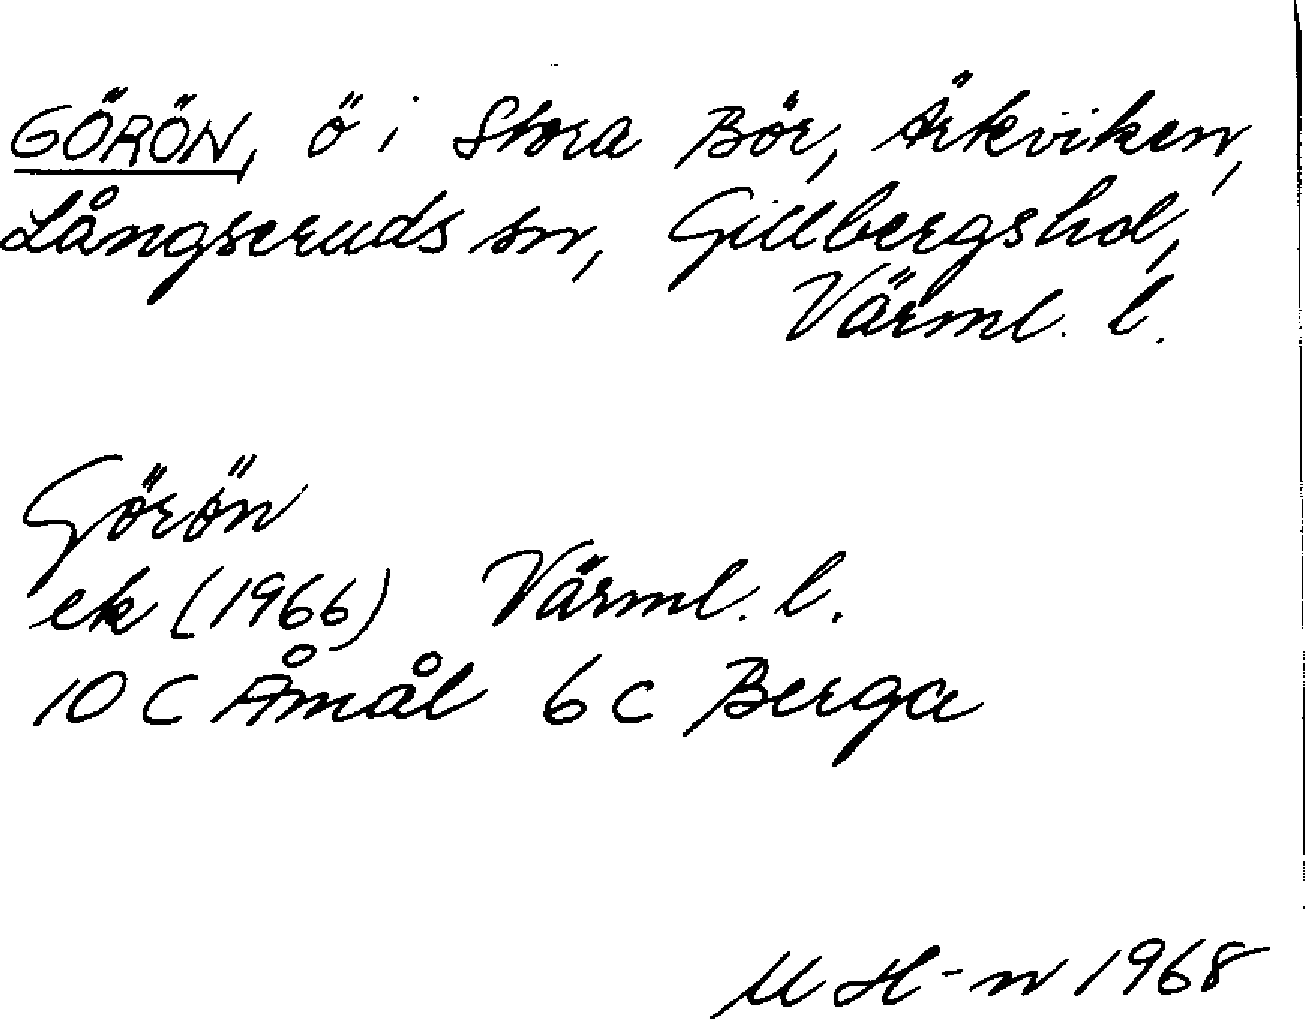 GÖRÖN, ö i Stora Bör, Ärkviken,
Långseruds sn, Gillbergs hd,
Värml. l.
Görön
ek (1966) Värml. l.
10 C Åmål 6 c Berga
M H-n 1968